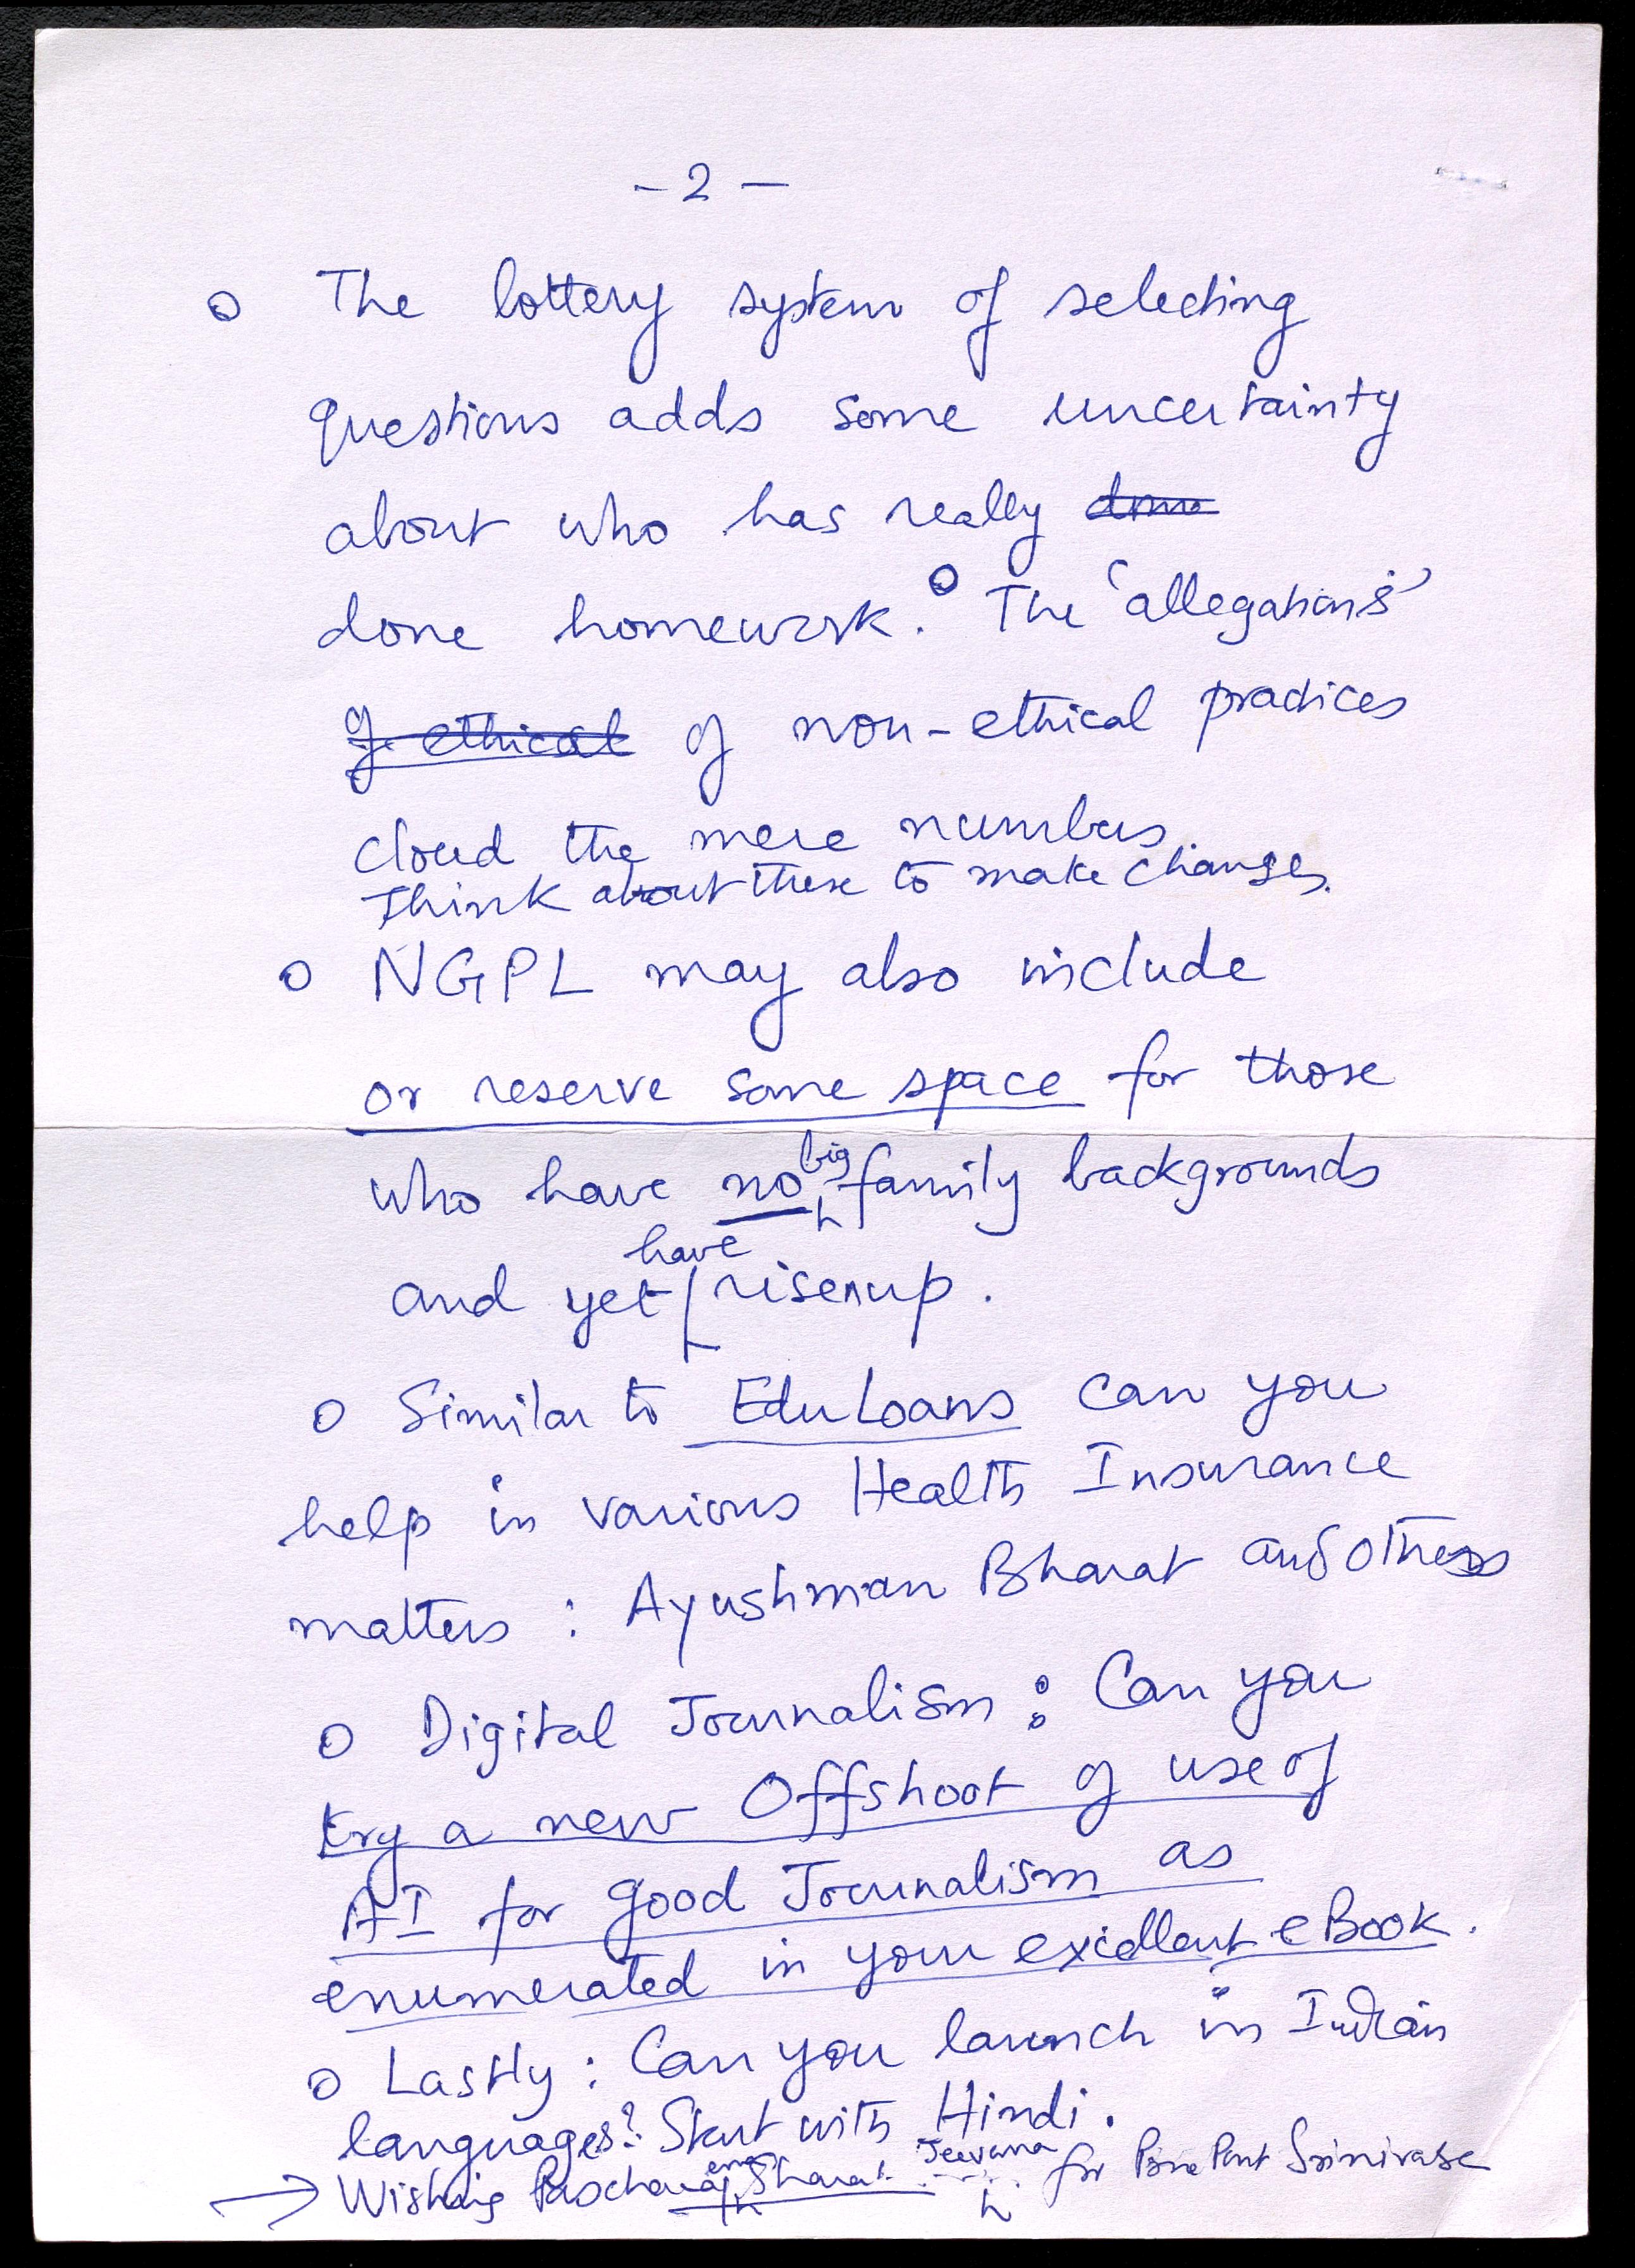 - 2 -
o The lottery system of selecting
questions adds some uncertainty
about who has really
done homework. o The 'allegations'
of ethical of non-ethical practices
cloud the mere numbers
Think about these to make changes.
o NGPL may also include
or reserve some space for those
who have no big family backgrounds
and yet have risen up.
o Similar to Edu Loans can you
help in various Health Insurance
matters : Ayushman Bharat and others
o Digital Journalism : Can you
try a new Offshoot of use of
AI for good Journalism as
enumerated in your excellent eBook.
o Lastly : Can you launch in Indian
languages? Start with Hindi.
→ Wishing Sharat Jeevana for